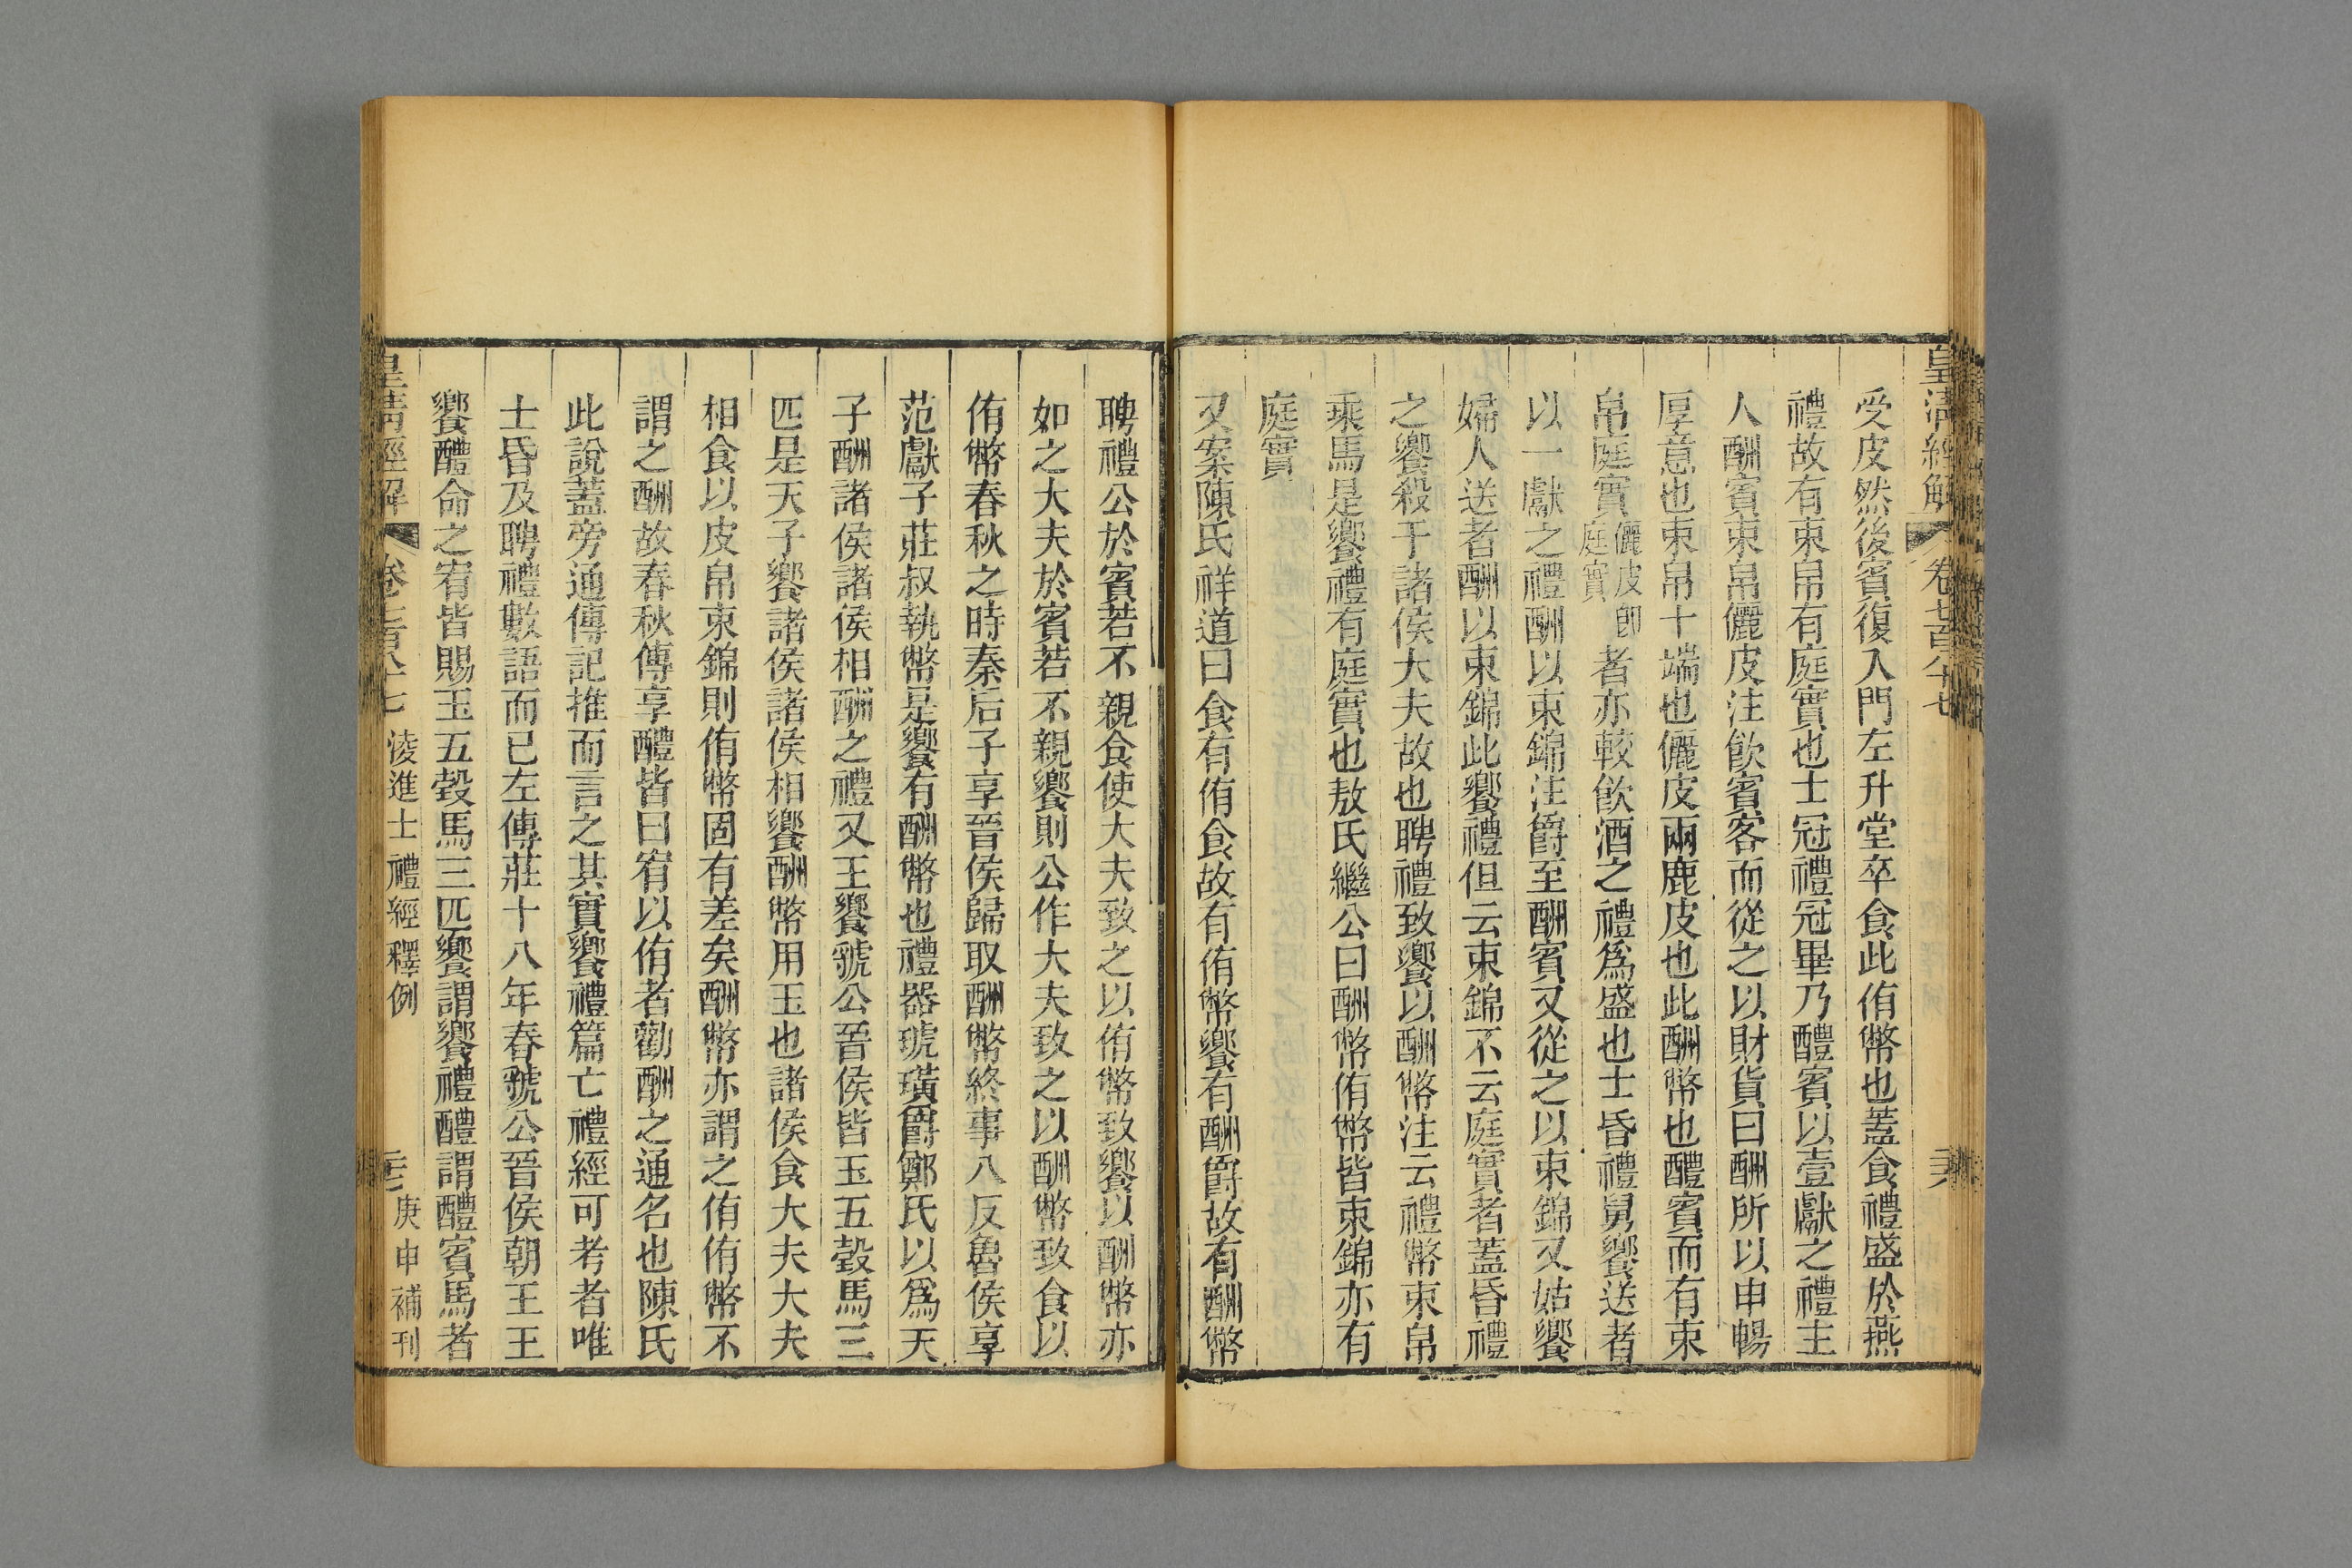 皇清經解 卷七百八十七 
受皮然後賓復入門左升堂卒食此侑幣也蓋食禮盛於燕
禮故有束帛有庭實也士冠禮冠畢乃醴賓以壹獻之禮主
人酬賓束帛儷皮注飲賓客而從之以財貨曰酬所以申暢
厚意也束帛十端也儷皮兩鹿皮也此酬幣也醴賓而有束
帛庭實儷皮卽庭實者亦較飲酒之禮爲盛也士昏禮舅饗送者
以一獻之禮酬以束錦注爵至酬賓又從之以束錦又姑饗
婦人送者酬以束錦此饗禮但云束錦不云庭實者蓋昏禮
之饗殺于諸侯大夫故也聘禮致饗以酬幣注云禮幣束帛
乘馬是饗禮有庭實也敖氏繼公曰酬幣侑幣皆束錦亦有
庭實
又案陳氏祥道曰食有侑食故有侑幣饗有酬爵故有酬幣
聘禮公於賓若不親食使大夫致之以侑幣致饗以酬幣亦
如之大夫於賓若不親饗則公作大夫致之以酬幣致食以
侑幣春秋之時秦后子享晉侯歸取酬幣終事八反魯侯享
范獻子莊叔執幣是饗有酬幣也禮器琥璜爵鄭氏以爲天
子酬諸侯諸侯相酬之禮又王饗虢公晉侯皆玉五瑴馬三
匹是天子饗諸侯諸侯相饗酬幣用玉也諸侯食大夫大夫
相食以皮帛束錦則侑幣固有差矣酬幣亦謂之侑侑幣不
謂之酬故春秋傳享醴皆曰宥以侑者勸酬之通名也陳氏
此說蓋旁通傳記推而言之其實饗禮篇亡禮經可考者唯
士昏及聘禮數語而已左傳莊十八年春虢公晉侯朝王王
饗醴命之宥皆賜玉五瑴馬三匹饗謂饗禮醴謂醴賓馬者
皇清經解 卷七百八十七 淩進士禮經釋例 庚申補刊